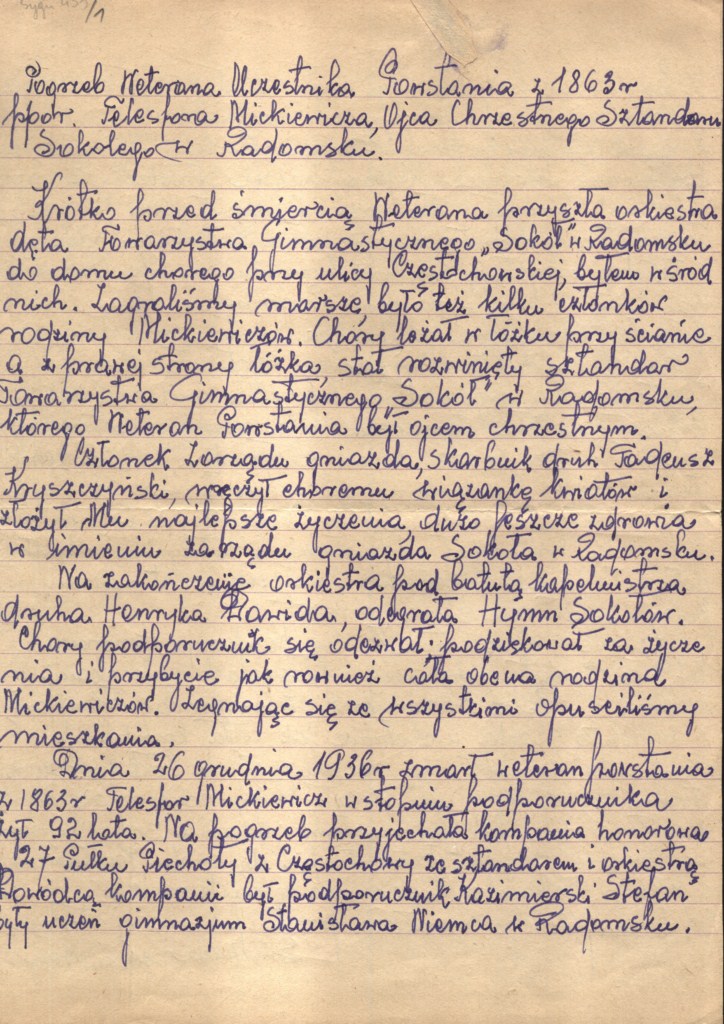 Pogrzeb Weterana Uczestnika Powstania z 1863r
ppor. Telesfora Mickiewicza, Ojca Chrzestnego Sztandaru
Sokolego w Radomsku.
Krótko przed śmiercią Weterana przyszła orkiestra
dęta Towarzystwa Gimnastycznego „Sokół" w Radomsku
do domu chorego przy ulicy Częstochowskiej, byłem wśród
nich. Zagraliśmy marsze, było też kilku członków
rodziny Mickiewiczów. Chory leżał w łóżku przy ścianie
a z prawej strony łóżka, stał rozwinięty sztandar
Towarzystwa Gimnastycznego „Sokół" w Radomsku,
którego Weteran Powstania był ojcem chrzestnym.
Członek Zarządu gniazda, skarbnik druh Tadeusz
Kryszczyński, wręczył choremu wiązankę kwiatów i
złożył Mu najlepsze życzenia, dużo jeszcze zdrowia
w imieniu zarządu gniazda Sokoła w Radomsku.
Na zakończenie orkiestra pod batutą kapelmistrza
druha Henryka Dawida, odegrała Hymn Sokołów.
Chory podporucznik się odezwał: podziękował za życze
nia i przybycie jak również cała obecna rodzina
Mickiewiczów. Żegnając się ze wszystkimi opuściliśmy
mieszkania.
Dnia 26 grudnia 1936r zmarł weteran powstania
z 1863r Telesfor Mickiewicz w stopniu podporucznika
żył 92 lata. Na pogrzeb przyjechała kompania honorowa
27 Pułku Piechoty z Częstochowy ze sztandarem i orkiestrą
Dowódcą kompanii był podporucznik Kazimierski Stefan
były uczeń gimnazjum Stanisława Niemca w Radomsku.